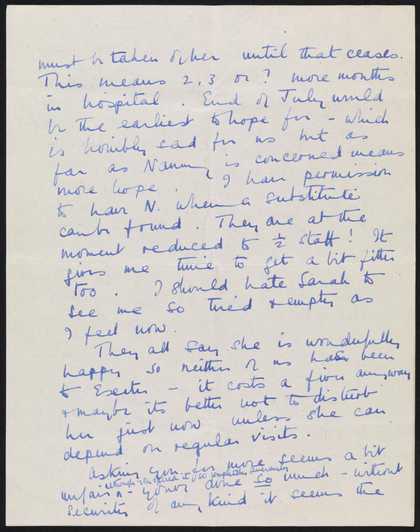 must be taken of her until that ceases.
This means 2, 3 or ? more months
in hospital. End of July would
be the earliest to hope for - which
is horribly sad for us but as
far as Nanny is concerned means
more hope. I have permission
to have N. when a substitute
can be found. They are at the
moment reduced to ½ staff! It
gives me time to get a bit fitter
too. I should hate Sarah to
see me so tired & empty as
I feel now.
They all say she is wonderfully
happy so neither of us has been
to Exeter - it costs a fiver anyway
& maybe its better not to disturb
her just now unless she can
depend on regular visits.
Asking you for more seems a bit
unfair - you've done so much - without
Security of any kind it seems the